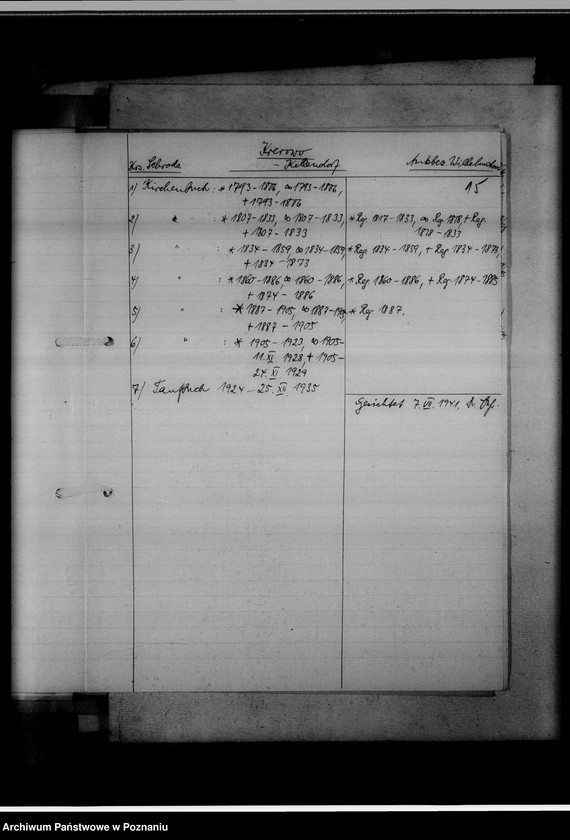 Krerowo
Krs. Schroda - Kettendorf Amtsbez.
15
1) Kirchenbuch : * 1793-1806, ∞ 1793-1806,
+ 1793-1806
2) " : * 1807-1833, ∞ 1807-1833, * Reg. 1817-1833, ∞ Reg. 1818, + Reg.
+ 1807-1833 1818-1833
3) " : * 1834-1859 ∞ 1834-1859 * Reg. 1834-1859, + Reg. 1834-1873,
+ 1834-1873
4) " : * 1860-1886, ∞ 1860-1886, * Reg. 1860-1886, + Reg. 1874-1885
+ 1874-1886
5) " : * 1887-1905, ∞ 1887-1905, * Reg. 1887.
+ 1887-1905
6) " : * 1905-1923, ∞ 1905-
11.XI. 1928, + 1905-
24. XI. 1929
7) Taufbuch 1924-25. XII. 1935
Gesichtet 7. VII. 1941. Dr.
Archiwum Państwowe w Poznaniu